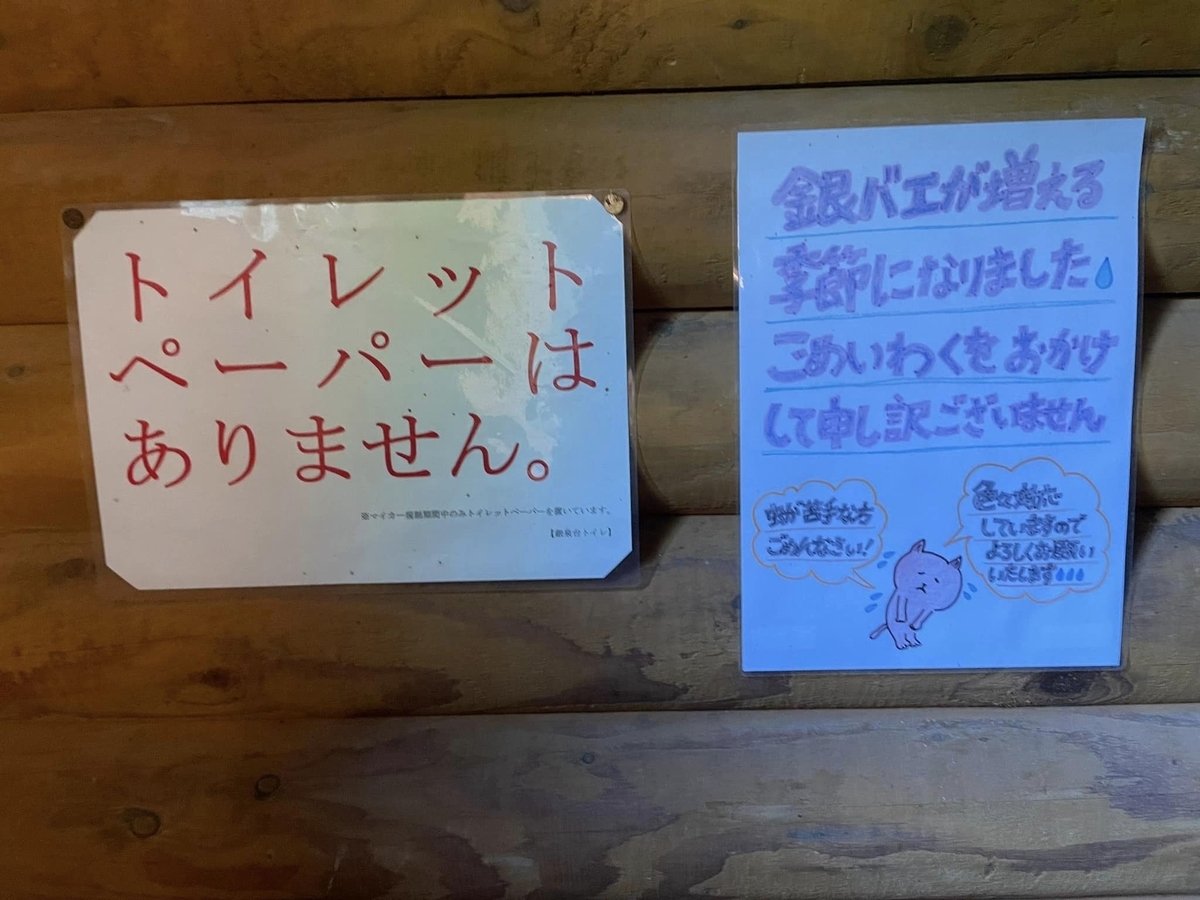 トイレット
ペーパーは
ありません。
※マイカー規制期間中のみトイレットペーパーを置いています。
【銀泉台トイレ】
銀バエが増える
季節になりました
ごめいわくをおかけ
して申し訳ございません
虫が苦手な方
ごめんなさい!
色々対応
していますので
よろしくお願い
いたします